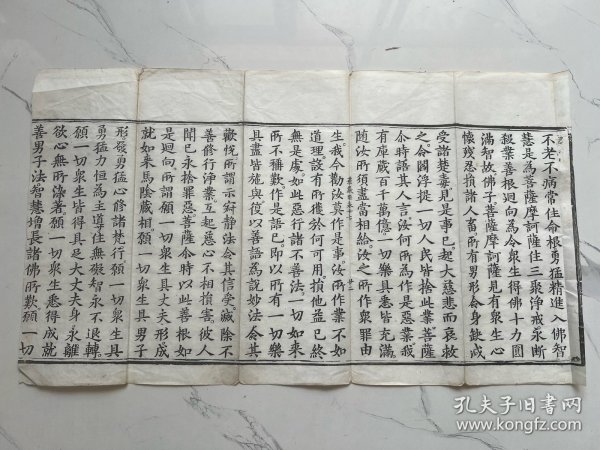 不老不病常住命根勇猛精進入佛智
慧是為菩薩摩訶薩住三聚淨戒永斷
殺業善根迴向為令衆生得佛十力圓
滿智故佛子菩薩摩訶薩見有衆生心
懷殘忍損諸人畜所有男形令身缺減
受諸楚毒見是事已起大慈悲而哀救
之令閻浮提一切人民皆捨此業菩薩
尒時語其人言汝何所為作是惡業我
有庫藏百千萬億一切樂具悉皆充滿
隨汝所須盡當相給汝之所作衆罪由
生我今勸汝莫作是事汝所作業不如
道理設有所獲於何可用損他益已終
無是處如此惡行諸不善法一切如来
所不稱歎作是語已即以所有一切樂
具盡皆施與復以善語為說妙法令其
歡悅所謂示寂靜法令其信受滅除不
善修行淨業互起慈心不相損害彼人
聞已永捨罪惡菩薩尒時以此善根如
是迴向所謂願一切衆生具丈夫形成
就如来馬陰藏相願一切衆生具男子
形發勇猛心修諸梵行願一切衆生具
勇猛力恒為主導住無礙智永不退轉
願一切衆生皆得具足大丈夫身永離
欲心無所染著願一切衆生悉得成就
善男子法智慧增長諸佛所歎願一切
孔夫子旧书网
www.kongfz.com